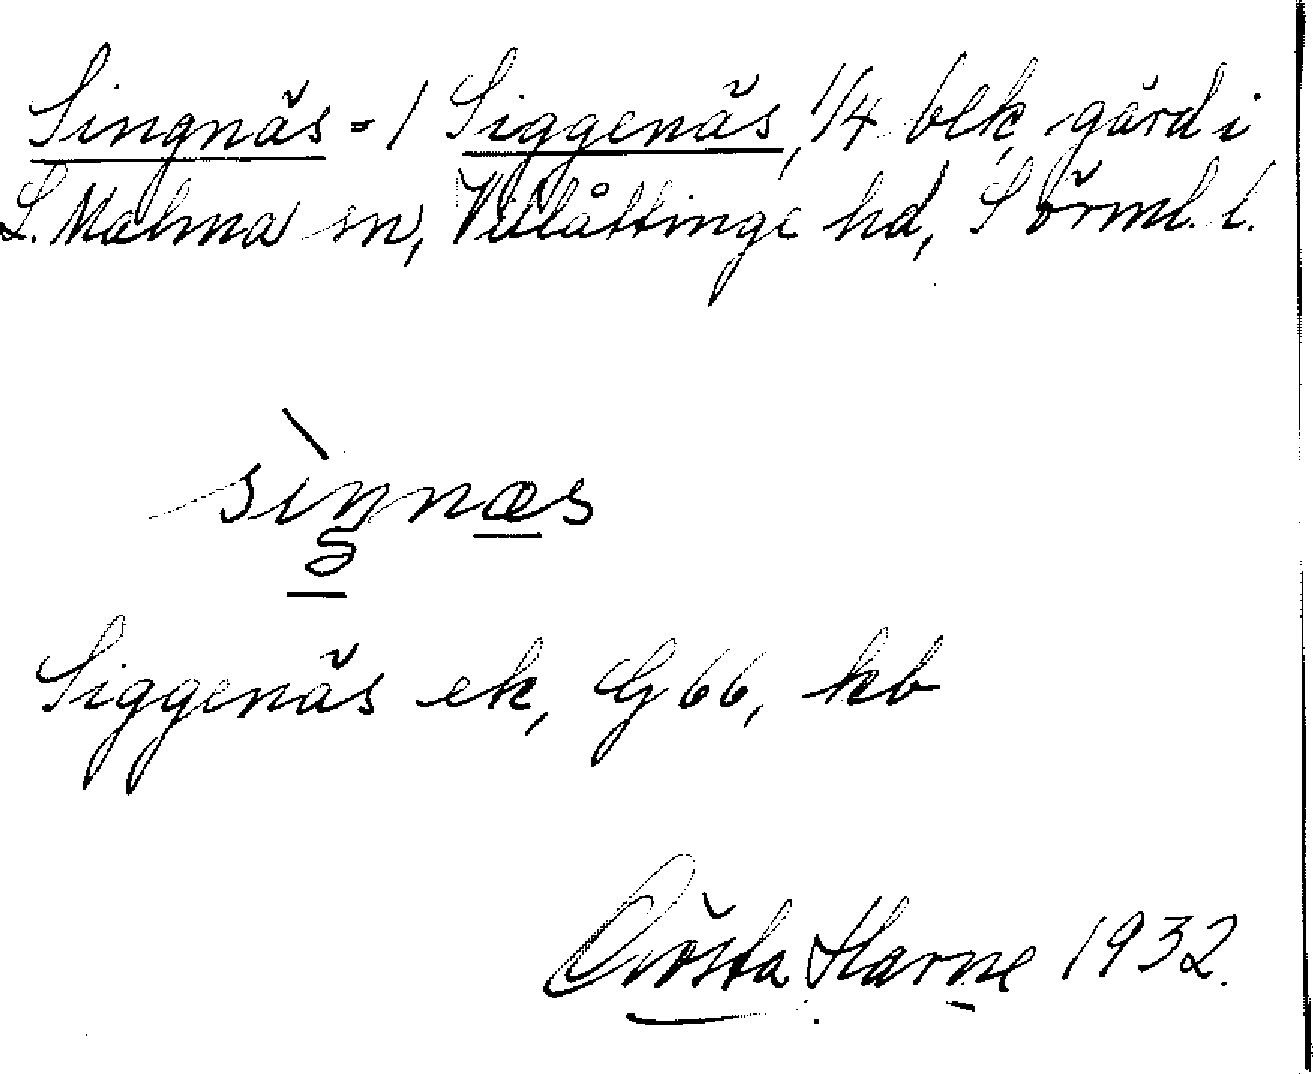 Singnäs = / Siggenäs, 1/4 blk, gård i
L. Malma sn, Villåttinge hd, Sörml. l.
sìŋnæs
Siggenäs ek, G 66, kb
Gösta 1932.